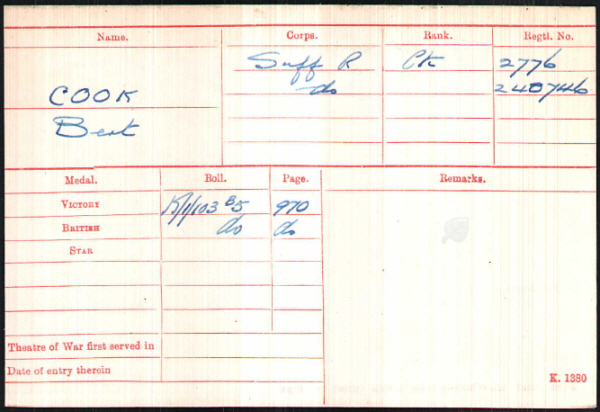 Name.
Corps.
Rank.
Regtl. No.
Suff R
2776
do
240746
COOK
Bert
Medal.
Roll.
Page.
Remarks.
VICTORY
K/1/103 B5
970
BRITISH
do
do
STAR
Theatre of War first served in
Date of entry therein
K. 1380